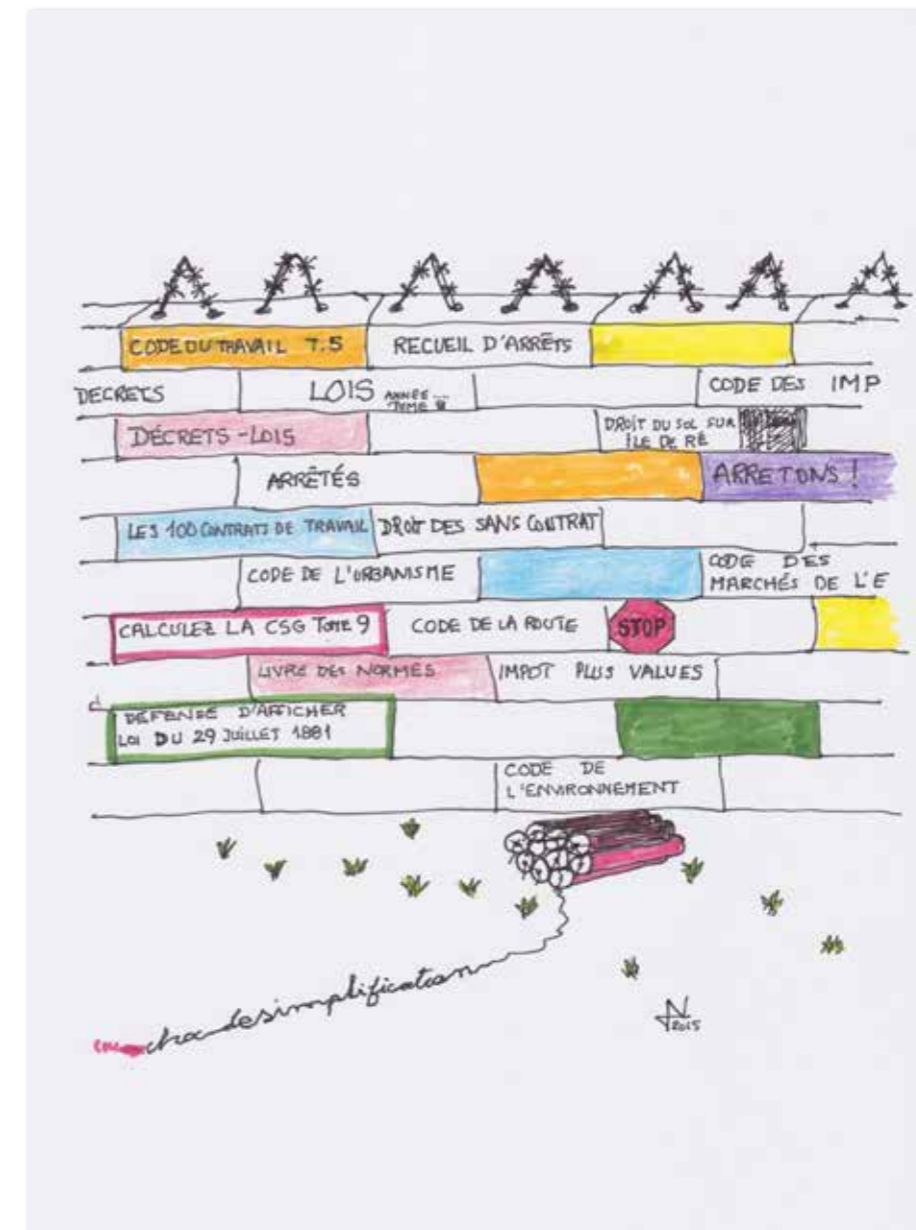 CODE DU TRAVAIL T.5
RECUEIL D'ARRÊTS
DECRETS
LOIS ANNÉE...
TOME
CODE DES IMP
DÉCRETS-LOIS
DROIT DU SOL SUR
ÎLE DE RÉ
ARRÊTÉS
ARRETONS !
LES 100 CONTRATS DE TRAVAIL
DROIT DES SANS CONTRAT
CODE DE L'URBANISME
CODE DES
MARCHÉS DE L'E
CALCULEZ LA CSG TOME 9
CODE DE LA ROUTE
STOP
LIVRE DES NORMES
IMPOT PLUS VALUES
DÉFENSE D'AFFICHER
LOI DU 29 JUILLET 1881
CODE DE
L'ENVIRONNEMENT
choc de simplification
2015